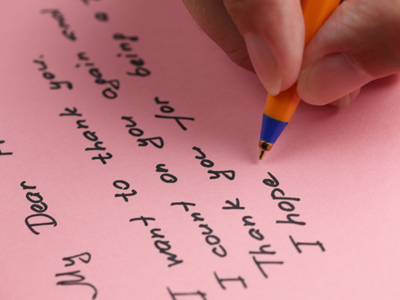 My Dear
I want to thank you.
I count on you again and
Thank you for being a
I hope